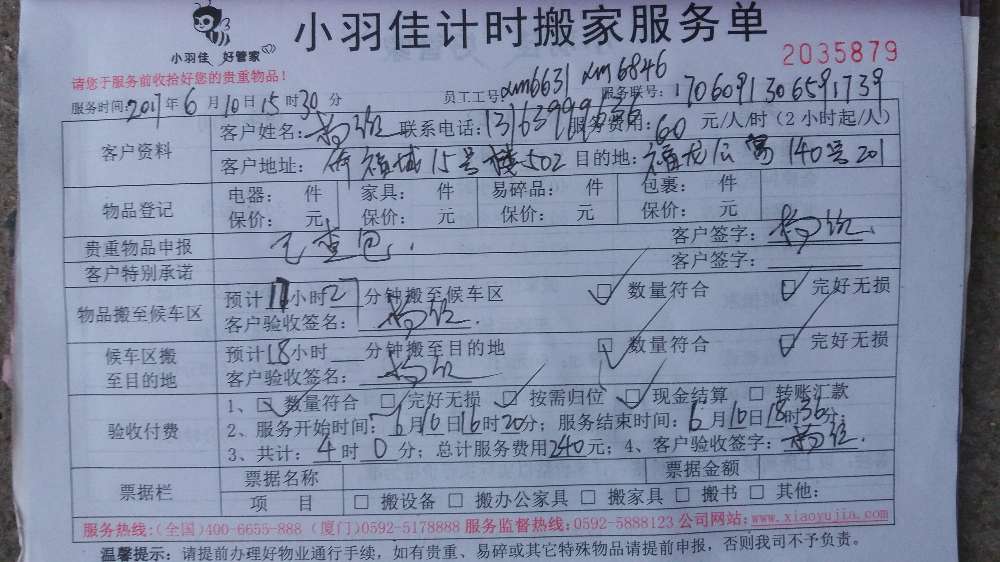 小羽佳 好管家
小羽佳计时搬家服务单
2035879
请您于服务前收拾好您的贵重物品！
服务时间：2017年6月10日15时30分 员工工号：xm6631 xm6846 服务联号：1706091306591739
客户资料
客户姓名：杨 联系电话：服务费用：60元/人/时（2小时起/人）
客户地址：15号楼502 目的地：福龙公寓140号201
物品登记
电器： 件 家具： 件 易碎品： 件 包裹： 件
保价： 元 保价： 元 保价： 元 保价： 元
贵重物品申报 已查包. 客户签字：杨
客户特别承诺 客户签字：
物品搬至候车区
预计小时分钟搬至候车区 ☑ 数量符合 ☑ 完好无损
客户验收签名：杨
候车区搬至目的地
预计18小时 分钟搬至目的地 ☑ 数量符合 ☑ 完好无损
客户验收签名：杨
验收付费
1、☑ 数量符合 ☑ 完好无损 ☑ 按需归位 ☑ 现金结算 □ 转账汇款
2、服务开始时间：6月10日16时20分；服务结束时间：6月10日18时36分；
3、共计：4时0分；总计服务费用240元；4、客户验收签字：杨
票据栏
票据名称 票据金额
项 目 □ 搬设备 □ 搬办公家具 □ 搬家具 □ 搬书 □ 其他：
服务热线:(全国)400-6655-888 (厦门)0592-5178888 服务监督热线:0592-5888123 公司网站:www.xiaoyujia.com
温馨提示：请提前办理好物业通行手续，如有贵重、易碎或其它特殊物品请提前申报，否则我司不予负责。